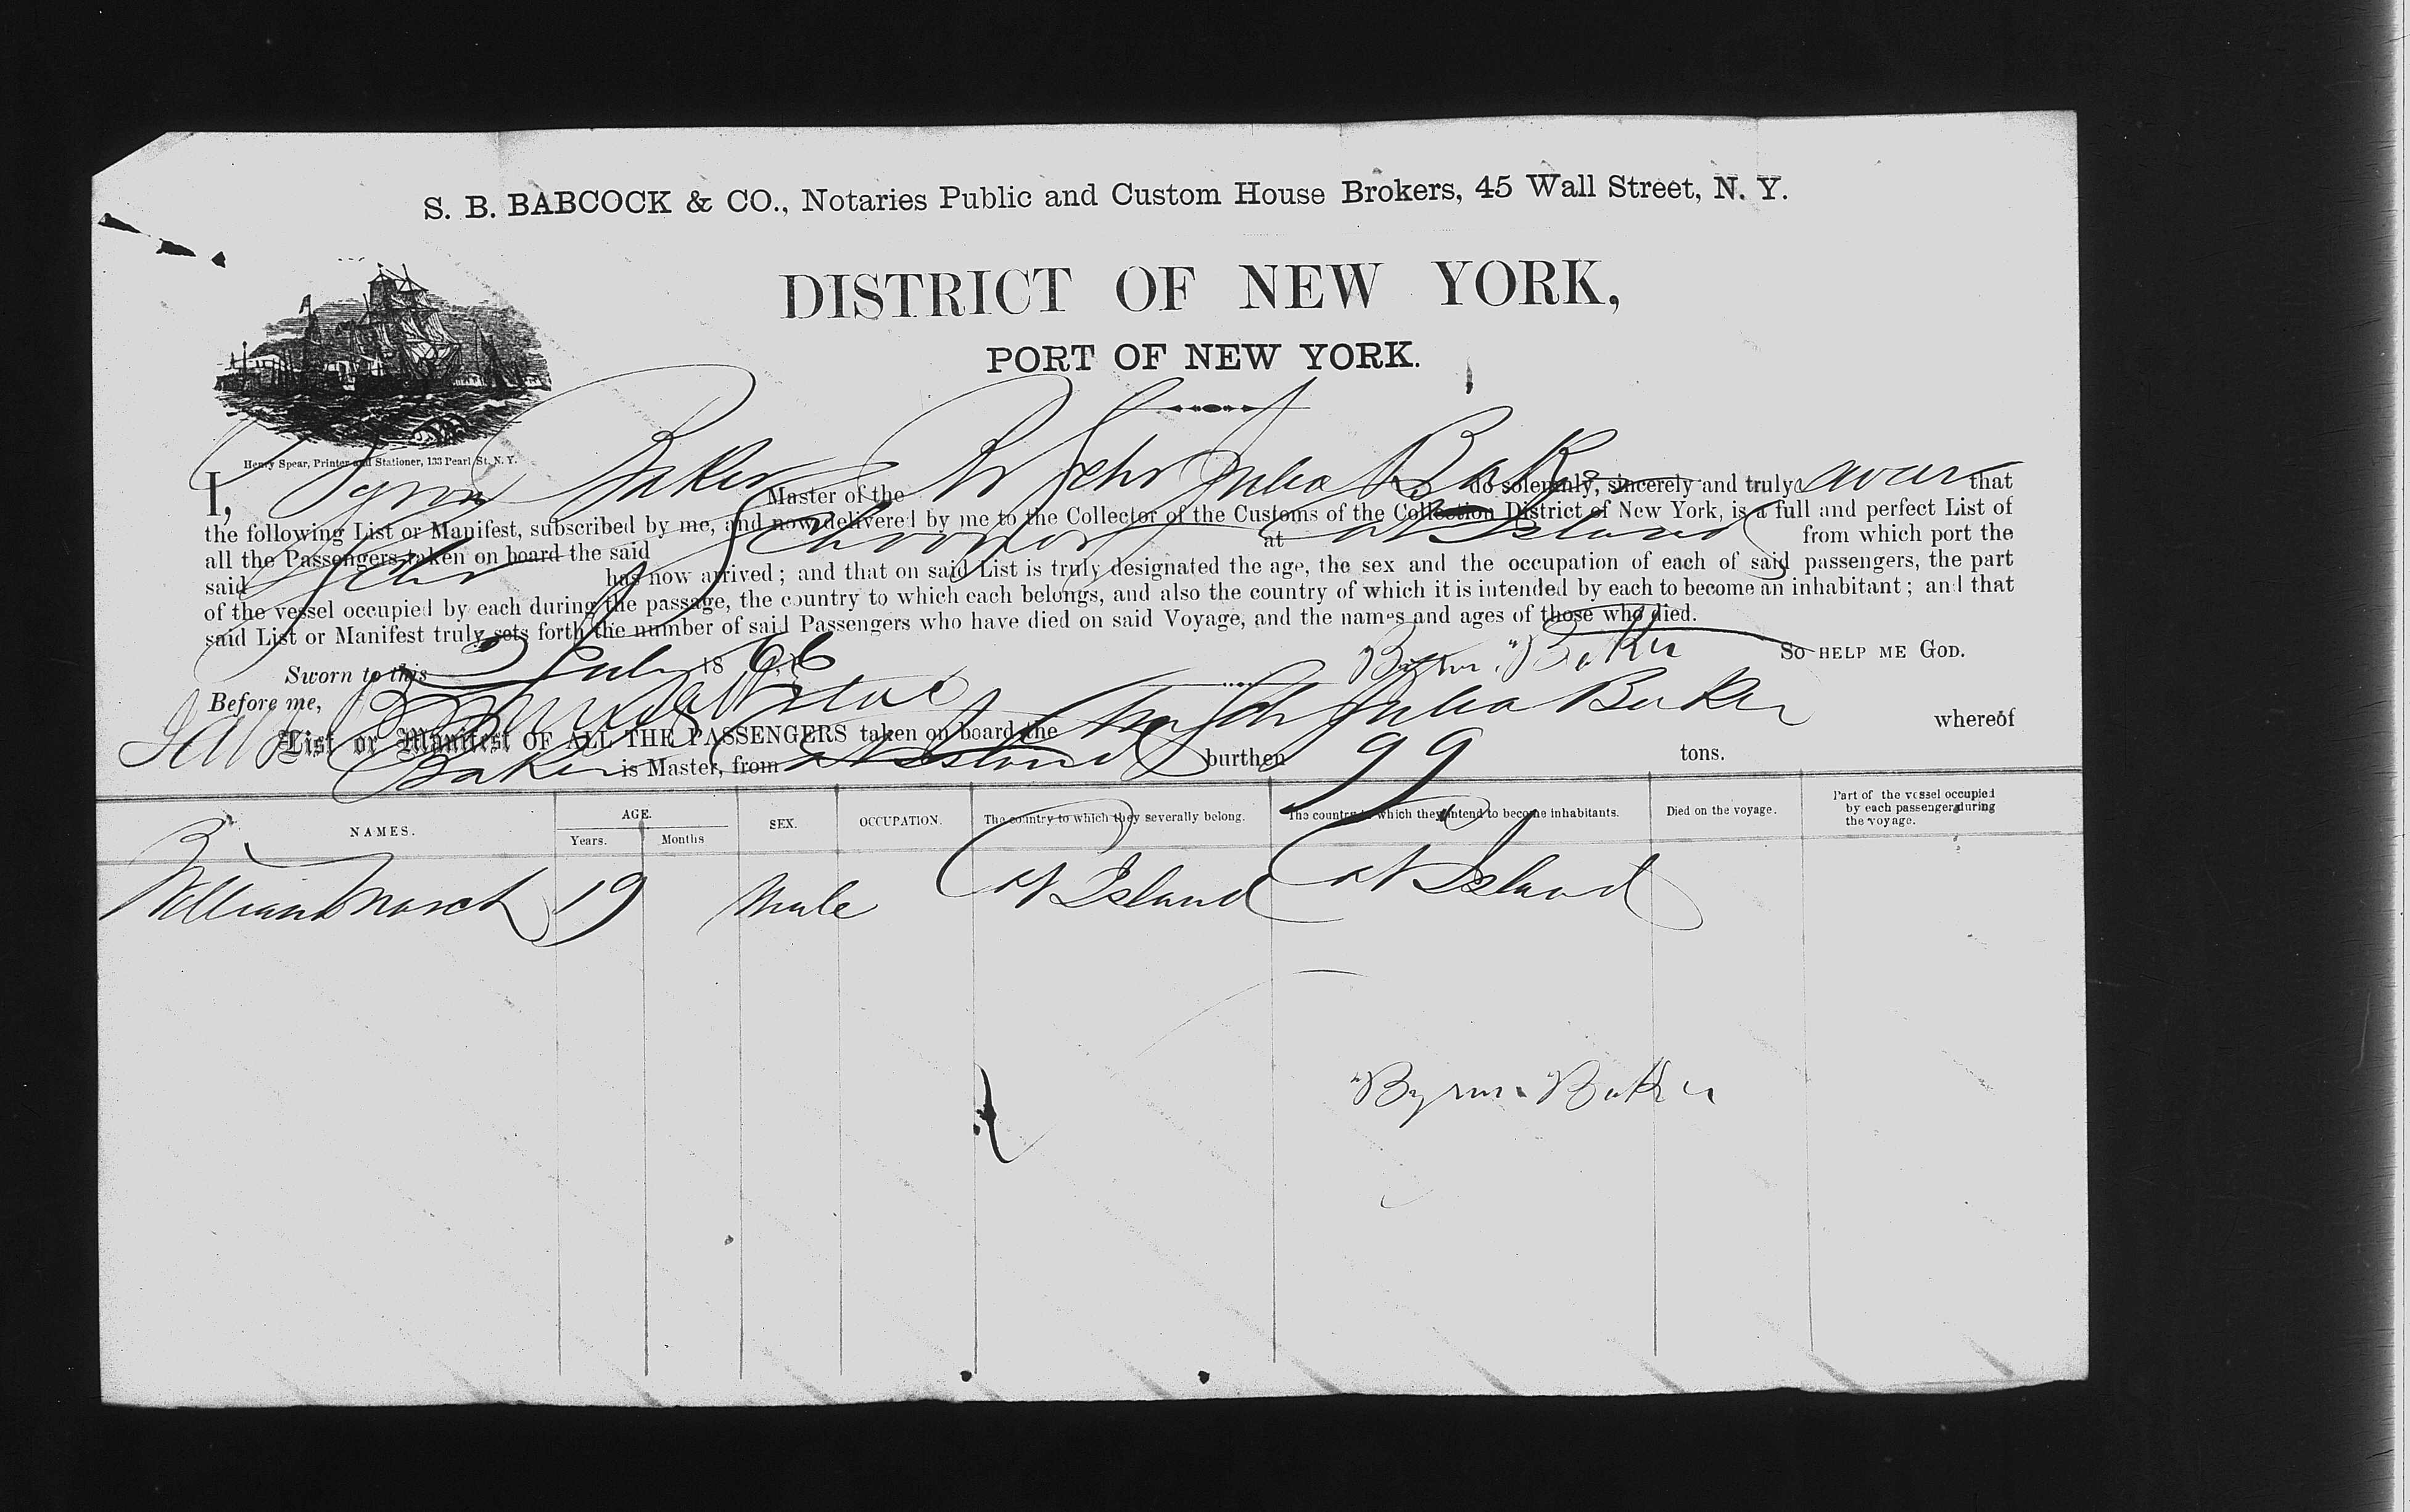 S. B. BABCOCK & CO., Notaries Public and Custom House Brokers, 45 Wall Street, N. Y.
DISTRICT OF NEW YORK,
PORT OF NEW YORK.
Henry Spear, Printer and Stationer, 133 Pearl St. N. Y.
I, Byron Baker Master of the Br Schr Julia Baker do solemnly, sincerely and truly swear that
the following List or Manifest, subscribed by me, and now delivered by me to the Collector of the Customs of the Collection District of New York, is a full and perfect List of
all the Passengers taken on board the said Schooner at Cat Island from which port the
said Schr has now arrived; and that on said List is truly designated the age, the sex and the occupation of each of said passengers, the part
of the vessel occupied by each during the passage, the country to which each belongs, and also the country of which it is intended by each to become an inhabitant; and that
said List or Manifest truly sets forth the number of said Passengers who have died on said Voyage, and the names and ages of those who died.
Sworn to this 2 July 1866 Byron Baker SO HELP ME GOD.
Before me,
List or Manifest OF ALL THE PASSENGERS taken on board the Schr Julia Baker whereof
Baker is Master, from Cat Island burthen 99 tons.
NAMES. AGE. SEX. OCCUPATION. The country to which they severally belong. The country to which they intend to become inhabitants. Died on the voyage. Part of the vessel occupied by each passenger during the voyage.
Years. Months
William March 19 Male Cat Island Cat Island
Byron Baker